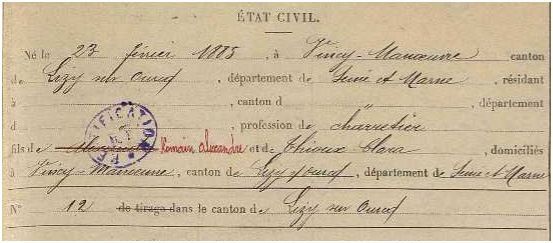 ÉTAT CIVIL.
Né le 23 février 1885, à Vincy-Manœuvre canton
de Lizy sur Ourcq, département de Seine et Marne, résidant
à , canton d " , département
d , profession de charretier
fils de Romain Alexandre et de Thioux Clara, domiciliés
à Vincy-Manœuvre, canton de Lizy s/ Ourcq, département de Seine et Marne
N° 12 de tirage dans le canton de Lizy sur Ourcq
RECTIFICATION